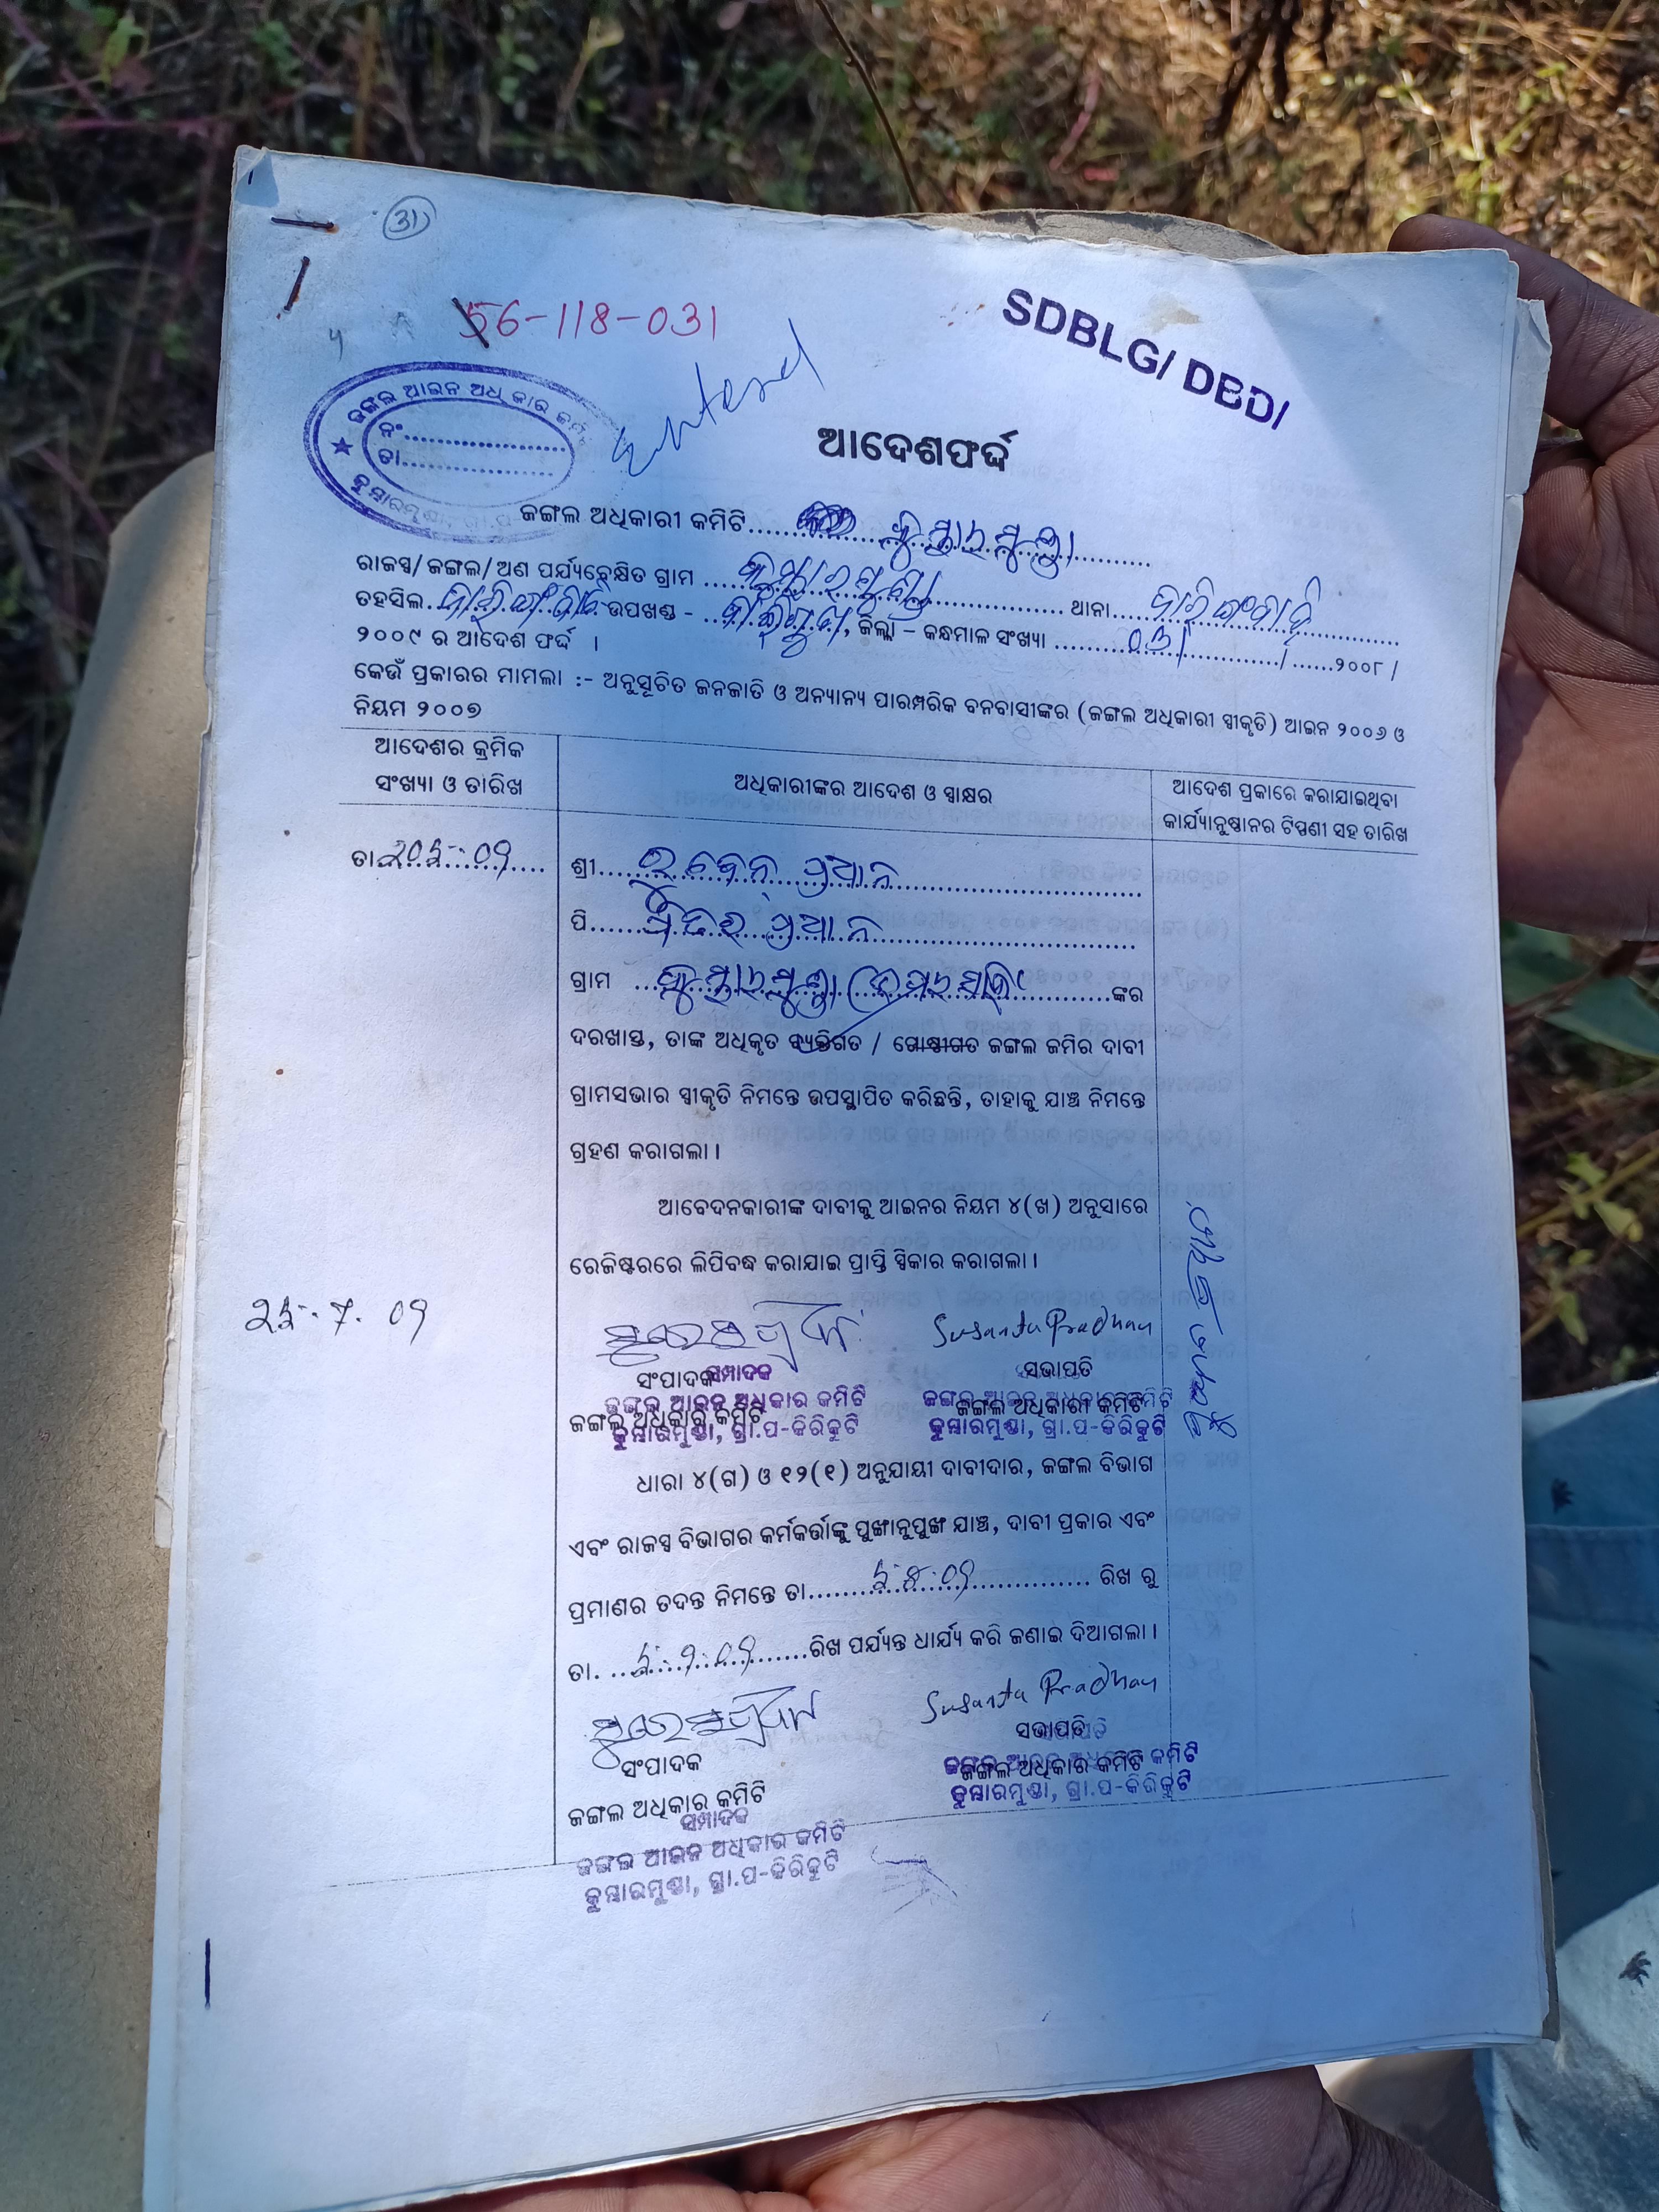 31
56-118-031
SDBLG/ DBD/
entered
ଜଙ୍ଗଲ ଆଇନ ଅଧିକାର କମିଟି
ନଂ
ତା
କୁମ୍ଭାରମୁଣ୍ଡା, ଗ୍ରା.ପ
ଆଦେଶଫର୍ଦ୍ଦ
ଜଙ୍ଗଲ ଅଧିକାରୀ କମିଟି........ କୁମ୍ଭାରମୁଣ୍ଡା
ରାଜସ୍ୱ/ଜଙ୍ଗଲ/ଅଣ ପର୍ଯ୍ୟବେକ୍ଷିତ ଗ୍ରାମ ... କୁମ୍ଭାରମୁଣ୍ଡା ... ଥାନା... ଦାରିଙ୍ଗବାଡ଼ି
ତହସିଲ.. ଦାରିଙ୍ଗବାଡ଼ି ଉପଖଣ୍ଡ - .. ବାଲିଗୁଡ଼ା, ଜିଲ୍ଲା – କନ୍ଧମାଳ ସଂଖ୍ୟା ... 031 .../......୨୦୦୮ /
୨୦୦୯ ର ଆଦେଶ ଫର୍ଦ୍ଦ ।
କେଉଁ ପ୍ରକାରର ମାମଲା :- ଅନୁସୂଚିତ ଜନଜାତି ଓ ଅନ୍ୟାନ୍ୟ ପାରମ୍ପରିକ ବନବାସୀଙ୍କର (ଜଙ୍ଗଲ ଅଧିକାରୀ ସ୍ୱୀକୃତି) ଆଇନ ୨୦୦୬ ଓ
ନିୟମ ୨୦୦୭
ଆଦେଶର କ୍ରମିକ
ସଂଖ୍ୟା ଓ ତାରିଖ
ଅଧିକାରୀଙ୍କର ଆଦେଶ ଓ ସ୍ୱାକ୍ଷର
ଆଦେଶ ପ୍ରକାରେ କରାଯାଇଥିବା
କାର୍ଯ୍ୟାନୁଷ୍ଠାନର ଟିପ୍ପଣୀ ସହ ତାରିଖ
ତା
ଶ୍ରୀ... ରୁବେନ୍ ପ୍ରଧାନ
ପି... ପ୍ରଧାନ
ଗ୍ରାମ ... କୁମ୍ଭାରମୁଣ୍ଡା ... ଙ୍କର
ଦରଖାସ୍ତ, ତାଙ୍କ ଅଧିକୃତ ବ୍ୟକ୍ତିଗତ / ଗୋଷ୍ଠୀଗତ ଜଙ୍ଗଲ ଜମିର ଦାବୀ
ଗ୍ରାମସଭାର ସ୍ୱୀକୃତି ନିମନ୍ତେ ଉପସ୍ଥାପିତ କରିଛନ୍ତି, ତାହାକୁ ଯାଞ୍ଚ ନିମନ୍ତେ
ଗ୍ରହଣ କରାଗଲା ।
ଆବେଦନକାରୀଙ୍କ ଦାବୀକୁ ଆଇନର ନିୟମ ୪(ଖ) ଅନୁସାରେ
ରେଜିଷ୍ଟରରେ ଲିପିବଦ୍ଧ କରାଯାଇ ପ୍ରାପ୍ତି ସ୍ୱିକାର କରାଗଲା ।
ସୁରେଶ ପ୍ରଧାନ
Susanta Pradhan
ସଂପାଦକ
ସମ୍ପାଦକ
ସଭାପତି
ଜଙ୍ଗଲ ଆଇନ ଅଧିକାର କମିଟି
ଜଙ୍ଗଲ ଅଧିକାର କମିଟି
କୁମ୍ଭାରମୁଣ୍ଡା, ଗ୍ରା.ପ-କିରିକୁଟି
ଜଙ୍ଗଲ ଆଇନ ଅଧିକାର କମିଟି
ଜଙ୍ଗଲ ଅଧିକାରୀ କମିଟି
କୁମ୍ଭାରମୁଣ୍ଡା, ଗ୍ରା.ପ-କିରିକୁଟି
ଧାରା ୪(ଗ) ଓ ୧୨(୧) ଅନୁଯାୟୀ ଦାବୀଦାର, ଜଙ୍ଗଲ ବିଭାଗ
ଏବଂ ରାଜସ୍ୱ ବିଭାଗର କର୍ମକର୍ତ୍ତାଙ୍କୁ ପୁଙ୍ଖାନୁପୁଙ୍ଖ ଯାଞ୍ଚ, ଦାବୀ ପ୍ରକାର ଏବଂ
ପ୍ରମାଣର ତଦନ୍ତ ନିମନ୍ତେ ତା............ ରିଖ ରୁ
ତା............ରିଖ ପର୍ଯ୍ୟନ୍ତ ଧାର୍ଯ୍ୟ କରି ଜଣାଇ ଦିଆଗଲା ।
ସୁରେଶ ପ୍ରଧାନ
Susanta Pradhan
ସଂପାଦକ
ସଭାପତି
ଜଙ୍ଗଲ ଅଧିକାର କମିଟି
ଜଙ୍ଗଲ ଆଇନ ଅଧିକାର କମିଟି
ଜଙ୍ଗଲ ଅଧିକାର କମିଟି
କୁମ୍ଭାରମୁଣ୍ଡା, ଗ୍ରା.ପ-କିରିକୁଟି
ସମ୍ପାଦକ
ଜଙ୍ଗଲ ଆଇନ ଅଧିକାର କମିଟି
କୁମ୍ଭାରମୁଣ୍ଡା, ଗ୍ରା.ପ-କିରିକୁଟି